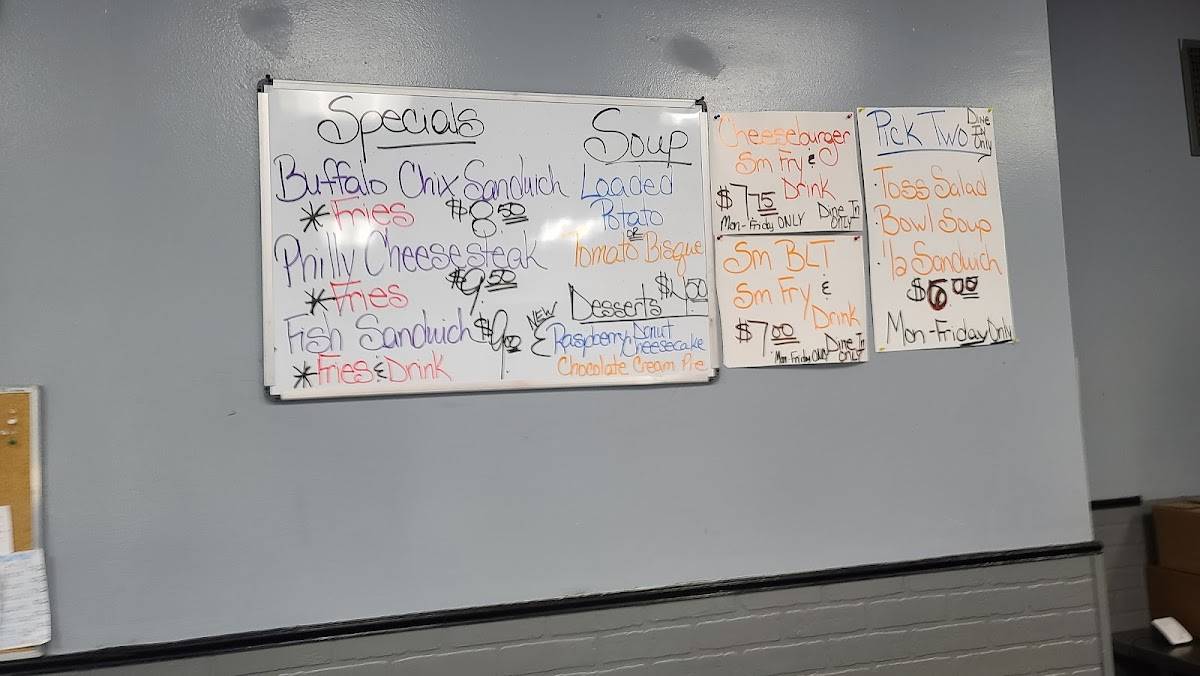 Specials
Buffalo Chix Sandwich
* Fries $8.50
Philly Cheesesteak
* Fries $9.50
Fish Sandwich $9.00
* Fries & Drink
Soup
Loaded
Potato
or
Tomato Bisque
$4.00
Desserts
NEW
& Raspberry Donut
Cheesecake
Chocolate Cream Pie
Cheeseburger
Sm Fry &
Drink
$7.75
Mon-Friday ONLY Dine In
ONLY
Sm BLT
Sm Fry &
Drink
$7.00
Mon-Friday ONLY Dine In
ONLY
Pick Two
Dine
In
Only
• Toss Salad
• Bowl Soup
• 1/2 Sandwich
$6.00
Mon-Friday Only